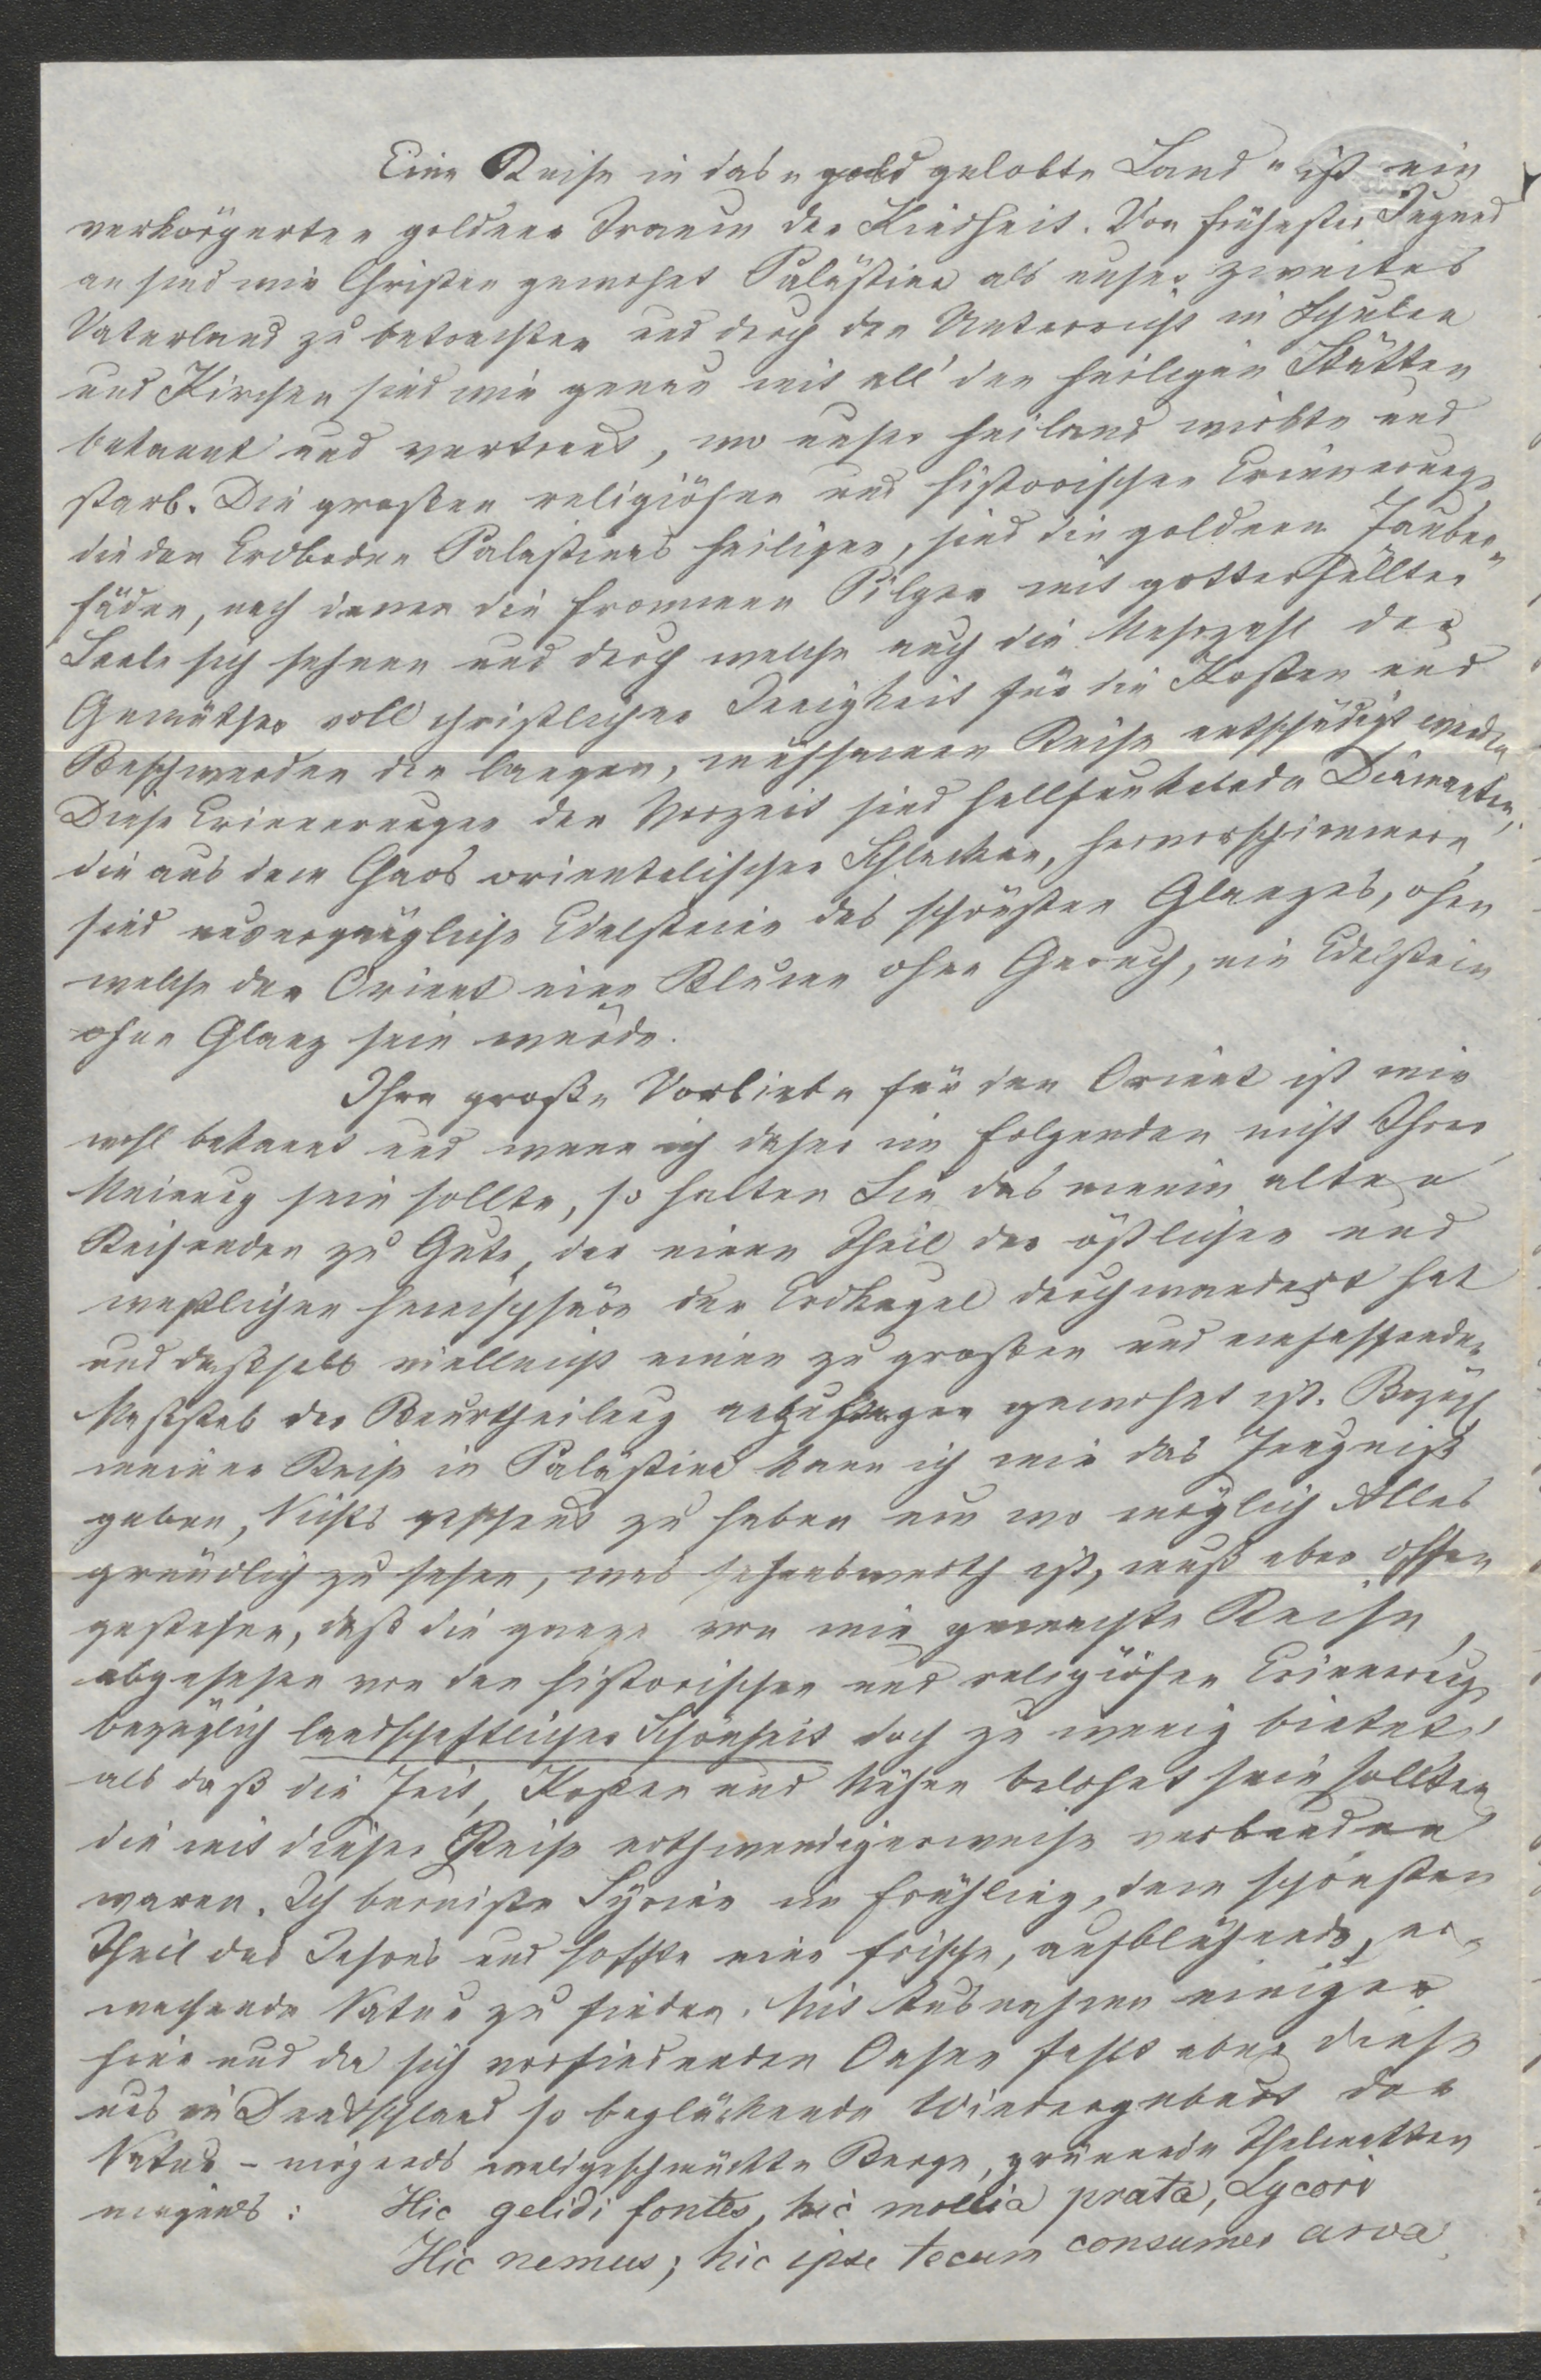 Eine Reise in das „gold gelobte Land“ ist ein
verkörperter goldener Traum der Kindheit. Von frühester Jugend
an sind wir Christen gewohnt Palästina als unser zweites
Vaterland zu betrachten und durch den Unterricht in Schulen
und Kirchen sind wir genau mit all' den heiligen Stätten
bekannt und vertraut, wo unser Heiland wirkte und
starb. Die großen religiösen und historischen Erinnerungen
die den Erdboden Palästinas heiligen, sind die goldenen Zauber-
fäden, nach denen die frommen Pilger mit gotterfüllter
Seele sich sehnen und durch welche auch die Mehrzahl der
Gemüther voll christlicher Innigkeit für die Kosten und
Beschwerden der langen, mühsamen Reise entschädigt werden
Diese Erinnerungen der Vorzeit sind hellfunkelnde Diamanten,
die aus dem Chaos orientalischer Schlacken, hervorschimmern,
sind unvergängliche Edelsteine des schönsten Glanzes, ohne
welche der Orient eine Blume ohne Geruch, ein Edelstein
ohne Glanz sein würde.
Ihre große Vorliebe für den Orient ist mir
wohl bekannt und wenn ich daher im Folgenden nicht Ihrer
Meinung sein sollte, so halten Sie das einem alten
Reisenden zu Gute, der einen Theil der östlichen und
westlichen Hemisphäre der Erdkugel durchwandert hat
und deßhalb vielleicht einen zu großen und umfassenden
Maßstab der Beurtheilung anzulegen gewohnt ist. Bezügl.
meiner Reise in Palästina kann ich mir das Zeugniß
geben, Nichts gespart zu haben um wo möglich Alles
gründlich zu sehen, was sehenswerth ist, muß aber offen
gestehen, daß die ganze von mir gemachte Reise,
abgesehen von den historischen und religiösen Erinnerungen
bezüglich landschaftlicher Schönheit doch zu wenig bietet,
als daß die Zeit, Kosten und Mühen belohnt sein sollten
die mit dieser Reise nothwendigerweise verbunden
waren. Ich bereiste Syrien im Frühling, dem schönsten
Theil des Jahres und hoffte eine frische, aufblühende, er-
wachende Natur zu finden. Mit Ausnahme einiger
hie und da sich vorfindenden Oasen fehlt aber diese
uns in Deutschland so beglückende Wiedergeburt der
Natur – nirgends waldgeschmückte Berge, grünende Thalmatten
nirgends: Hic gelidi fontes, hic mollia prata, Lycori
Hic nemus; hic ipse tecum consumer arva.